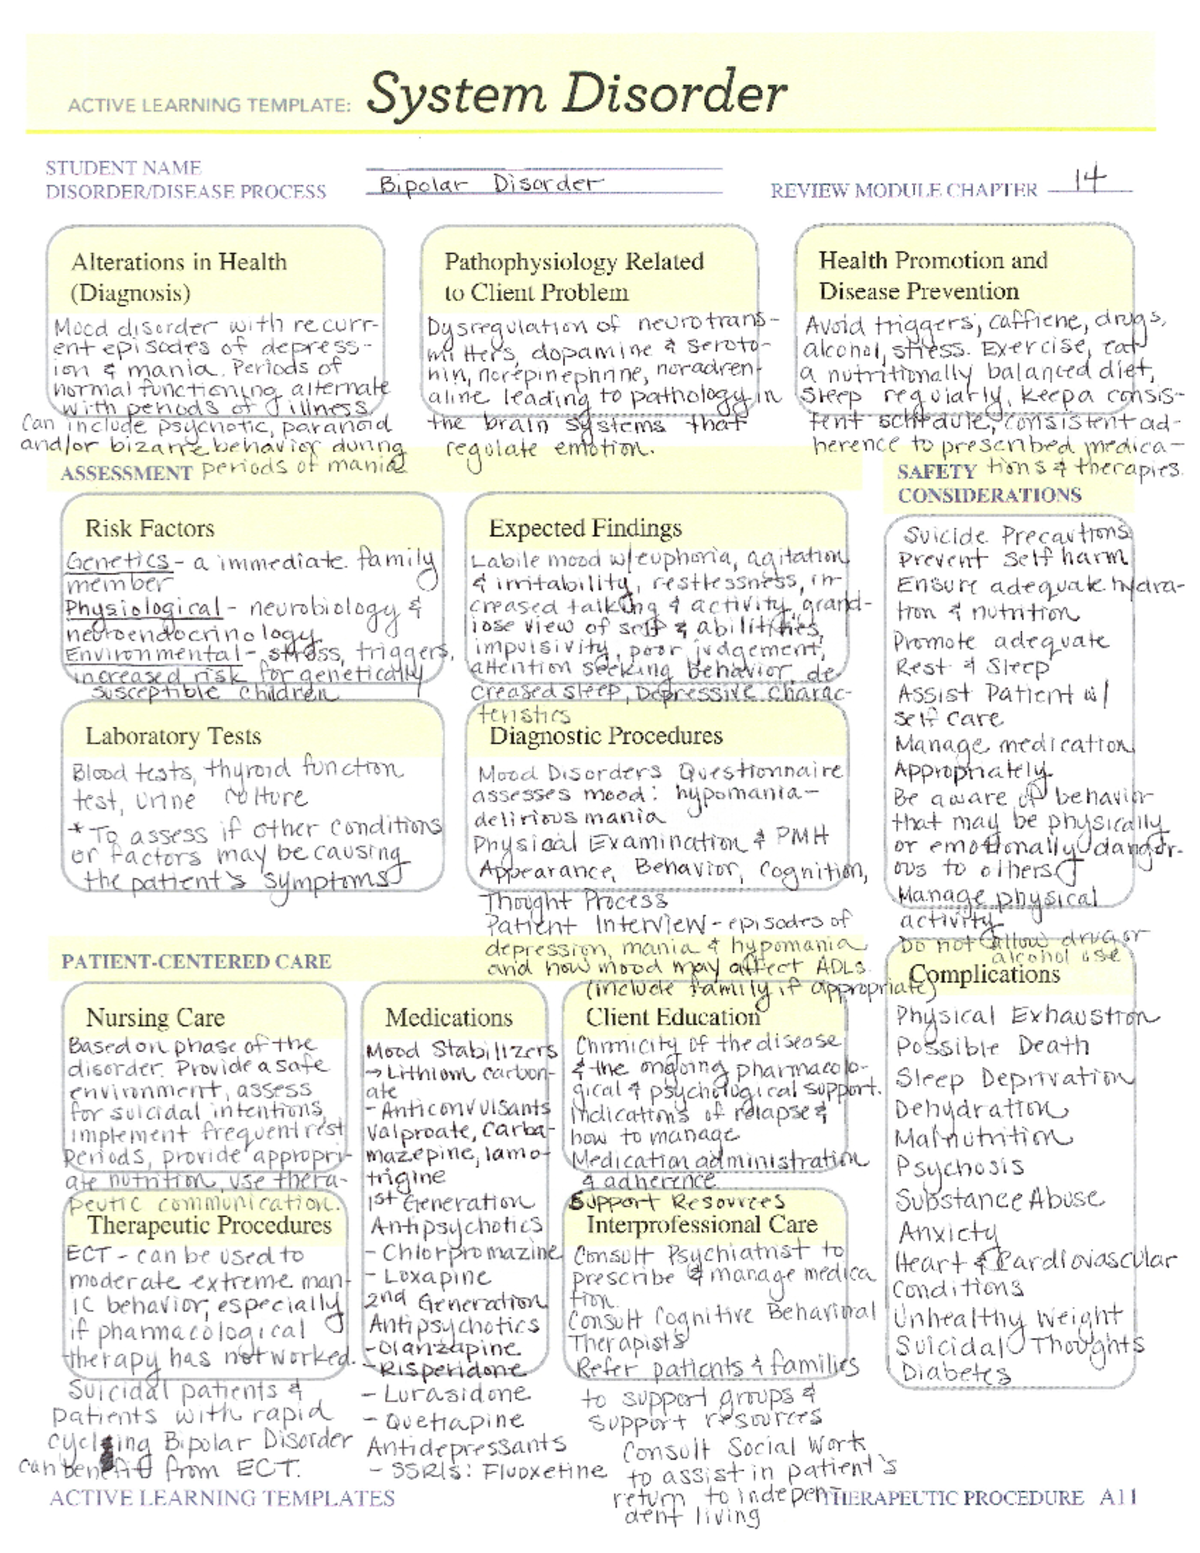 ACTIVE LEARNING TEMPLATE: System Disorder
STUDENT NAME
DISORDER/DISEASE PROCESS Bipolar Disorder
REVIEW MODULE CHAPTER 14
Alterations in Health
(Diagnosis)
Mood disorder with recurr-
ent episodes of depress-
ion & mania. Periods of
normal functioning alternate
with periods of illness
can include psychotic, paranoid
and/or bizarre behavior during
periods of mania
Pathophysiology Related
to Client Problem
Dysregulation of neurotrans-
mitters, dopamine & seroto-
nin, norepinephrine, noradren-
aline leading to pathology in
the brain systems that
regulate emotion.
Health Promotion and
Disease Prevention
Avoid triggers; caffiene, drugs,
alcohol, stress. Exercise, eat
a nutritionally balanced diet,
Sleep regularly, keep a consis-
tent schedule, consistent ad-
herence to prescribed medica-
tions & therapies.
ASSESSMENT
Risk Factors
Genetics - a immediate family
member
Physiological - neurobiology &
neuroendocrinology
Environmental - stress, triggers,
increased risk for genetically
susceptible children
Expected Findings
Labile mood w/euphoria, agitation
& irritability, restlessness, in-
creased talking & activity, grand-
iose view of self & abilities,
impulsivity, poor judgement,
attention seeking behavior, de-
creased sleep, Depressive charac-
teristics
SAFETY
CONSIDERATIONS
Suicide Precautions
Prevent Self harm
Ensure adequate hydra-
tion & nutrition
Promote adequate
Rest & Sleep
Assist Patient w/
Self Care
Manage medication
Appropriately
Be aware of behavior
that may be physically
or emotionally danger-
ous to others
Manage physical
activity
Do not allow drug or
alcohol use
Laboratory Tests
Blood tests, thyroid function
test, urine culture
*To assess if other conditions
or factors may be causing
the patient's symptoms
Diagnostic Procedures
Mood Disorders Questionnaire
assesses mood: hypomania-
delirious mania
Physical Examination & PMH
Appearance, Behavior, Cognition,
Thought Process
Patient Interview - episodes of
depression, mania & hypomania
and how mood may affect ADLs.
(include family if appropriate)
PATIENT-CENTERED CARE
Nursing Care
Based on phase of the
disorder. Provide a safe
environment, assess
for suicidal intentions,
implement frequent rest
periods, provide appropri-
ate nutrition, use thera-
peutic communication.
Medications
Mood Stabilizers
→ Lithium carbon-
ate
- Anticonvulsants
Valproate, Carba-
mazepine, lamo-
trigine
1st Generation
Antipsychotics
- Chlorpromazine
- Loxapine
2nd Generation
Antipsychotics
- Olanzapine
- Risperidone
- Lurasidone
- Quetiapine
Antidepressants
- SSRIs: Fluoxetine
Client Education
Chronicity of the disease
& the ongoing pharmacolo-
gical & psychological support.
Indications of relapse &
how to manage
Medication administration
& adherence
Support Resources
Complications
Physical Exhaustion
Possible Death
Sleep Deprivation
Dehydration
Malnutrition
Psychosis
Substance Abuse
Anxiety
Heart & Cardiovascular
Conditions
Unhealthy Weight
Suicidal Thoughts
Diabetes
Therapeutic Procedures
ECT - can be used to
moderate extreme man-
ic behavior, especially
if pharmacological
therapy has not worked.
Suicidal patients &
patients with rapid
cycling Bipolar Disorder
can benefit from ECT.
Interprofessional Care
Consult Psychiatrist to
prescribe & manage medica
tion.
Consult Cognitive Behavioral
Therapists
Refer patients & families
to support groups &
support resources
Consult Social Work
to assist in patient's
return to indepen-
dent living
ACTIVE LEARNING TEMPLATES
THERAPEUTIC PROCEDURE A11